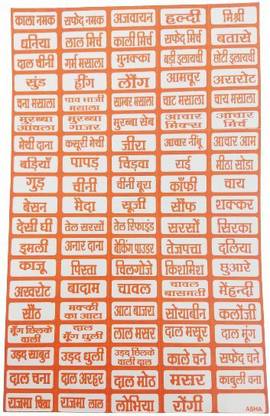 काला नमक सफेद नमक अजवायन हल्दी मिश्री
धनिया लाल मिर्च काली मिर्च सफेद मिर्च बतासे
दाल चीनी गर्म मसाला मुनक्का बड़ी इलायची छोटी इलायची
सुंड हींग लौंग आमचूर अरारोट
चना मसाला पाव भाजी मसाला साम्बर मसाला चाट मसाला चाय मसाला
मुरब्बा आंवला मुरब्बा गाजर मुरब्बा सेब आचार मिक्स आचार मिर्च
मेथी दाना कसूरी मेथी जीरा आचार नींबू आचार आम
बड़ियाँ पापड़ चिड़वा राई मीठा सोडा
गुड़ चीनी चीनी बूरा कॉफी चाय
बेसन मैदा सूजी सौंफ शक्कर
देसी घी तेल सरसों तेल रिफाइंड सरसों सिरका
इमली अनार दाना बेकिंग पाउडर तेजपत्ता दलिया
काजू पिस्ता चिलगोजे किशमिश छुआरे
अखरोट बादाम चावल चावल बासमती मेंहन्दी
सौंठ मक्की का आटा आटा बाजरा सोयाबीन कलौंजी
मूँग छिलके वाली दाल मूँग धुली लाल मसर दाल मसूर दाल मूंग
उड़द साबुत उड़द धुली उड़द छिलके वाली काले चने सफेद चने
दाल चना दाल अरहर दाल मोठ मसर काबुली चना
राजमा चित्रा राजमा लाल लोभिया रोंगी
ASHA